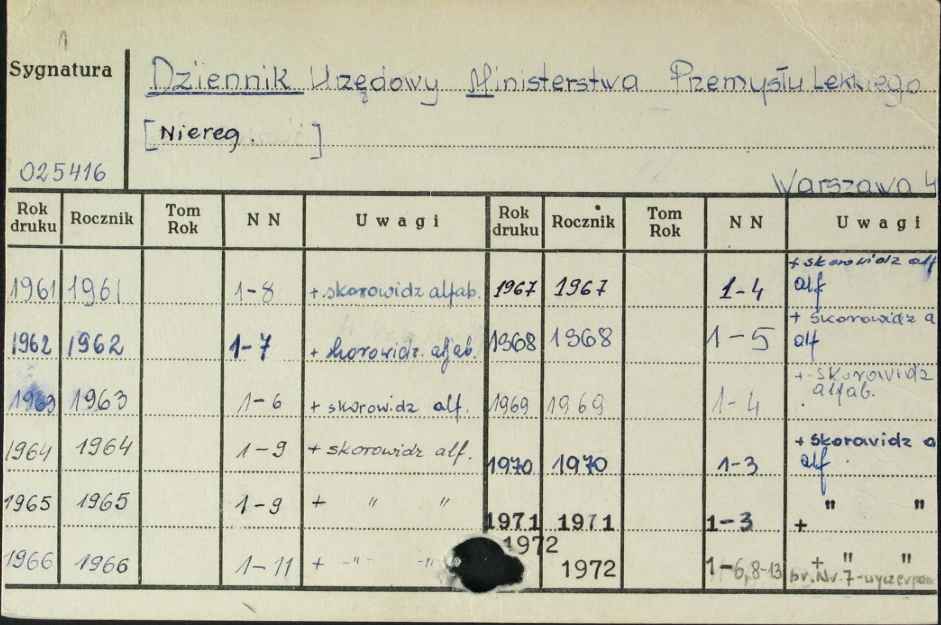 Sygnatura
Dziennik Urzędowy Ministerstwa Przemysłu Lekkiego
[Niereg. ]
025416
Warszawa 4
Rok druku Rocznik Tom Rok NN Uwagi Rok druku Rocznik Tom Rok NN Uwagi
1961 1961 1-8 + skorowidz alfab. 1967 1967 1-4 + skorowidz alf
alf
1962 1962 1-7 + skorowidz. alfab. 1968 1968 1-5 + skorowidz a
alf
1963 1963 1-6 + skorowidz alf. 1969 1969 1-4 + skorowidz
alfab.
1964 1964 1-9 + skorowidz alf. 1970 1970 1-3 + skorowidz a
alf.
1965 1965 1-9 + " " 1971 1971 1-3 + " "
1966 1966 1-11 + -"- -"- 1972 1972 1-6, 8-13 + " "
br. Nr. 7-wyczerpan